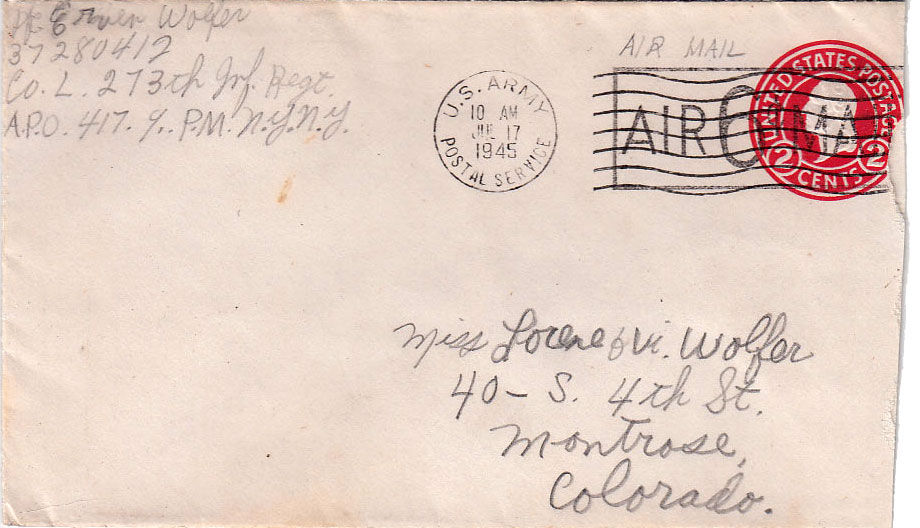 Pf. Erven Wolfer
37280412
Co. L. 273th Inf. Regt.
A.P.O. 417. %. P.M. N.Y. N.Y.
AIR MAIL
U.S. ARMY
10 AM
JUL 17
1945
POSTAL SERVICE
AIR 6¢ MAI
UNITED STATES POSTAGE
2 2
CENTS
Miss Lorene & Vi. Wolfer
40 - S. 4th St.
Montrose,
Colorado.